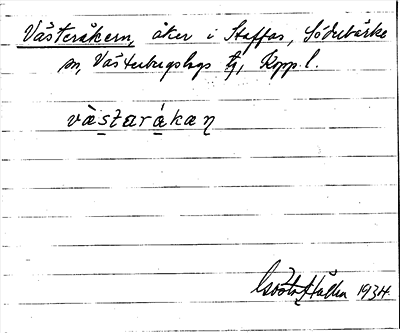 Västeråkern, åker i Staffas, Söderbärke
sn, Västerbergslags tg, Kopp. l.
västaråkaɳ
Gösta Hallén 1934.